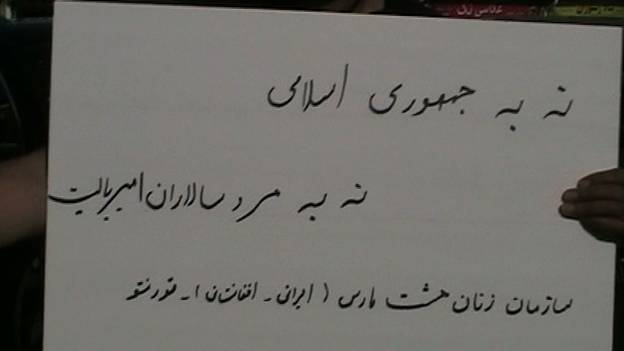 نه به جمهوری اسلامی
نه به مردسالاران امپریالیست
سازمان زنان هشت مارس (ایرانی - افغانستان) - تورنتو